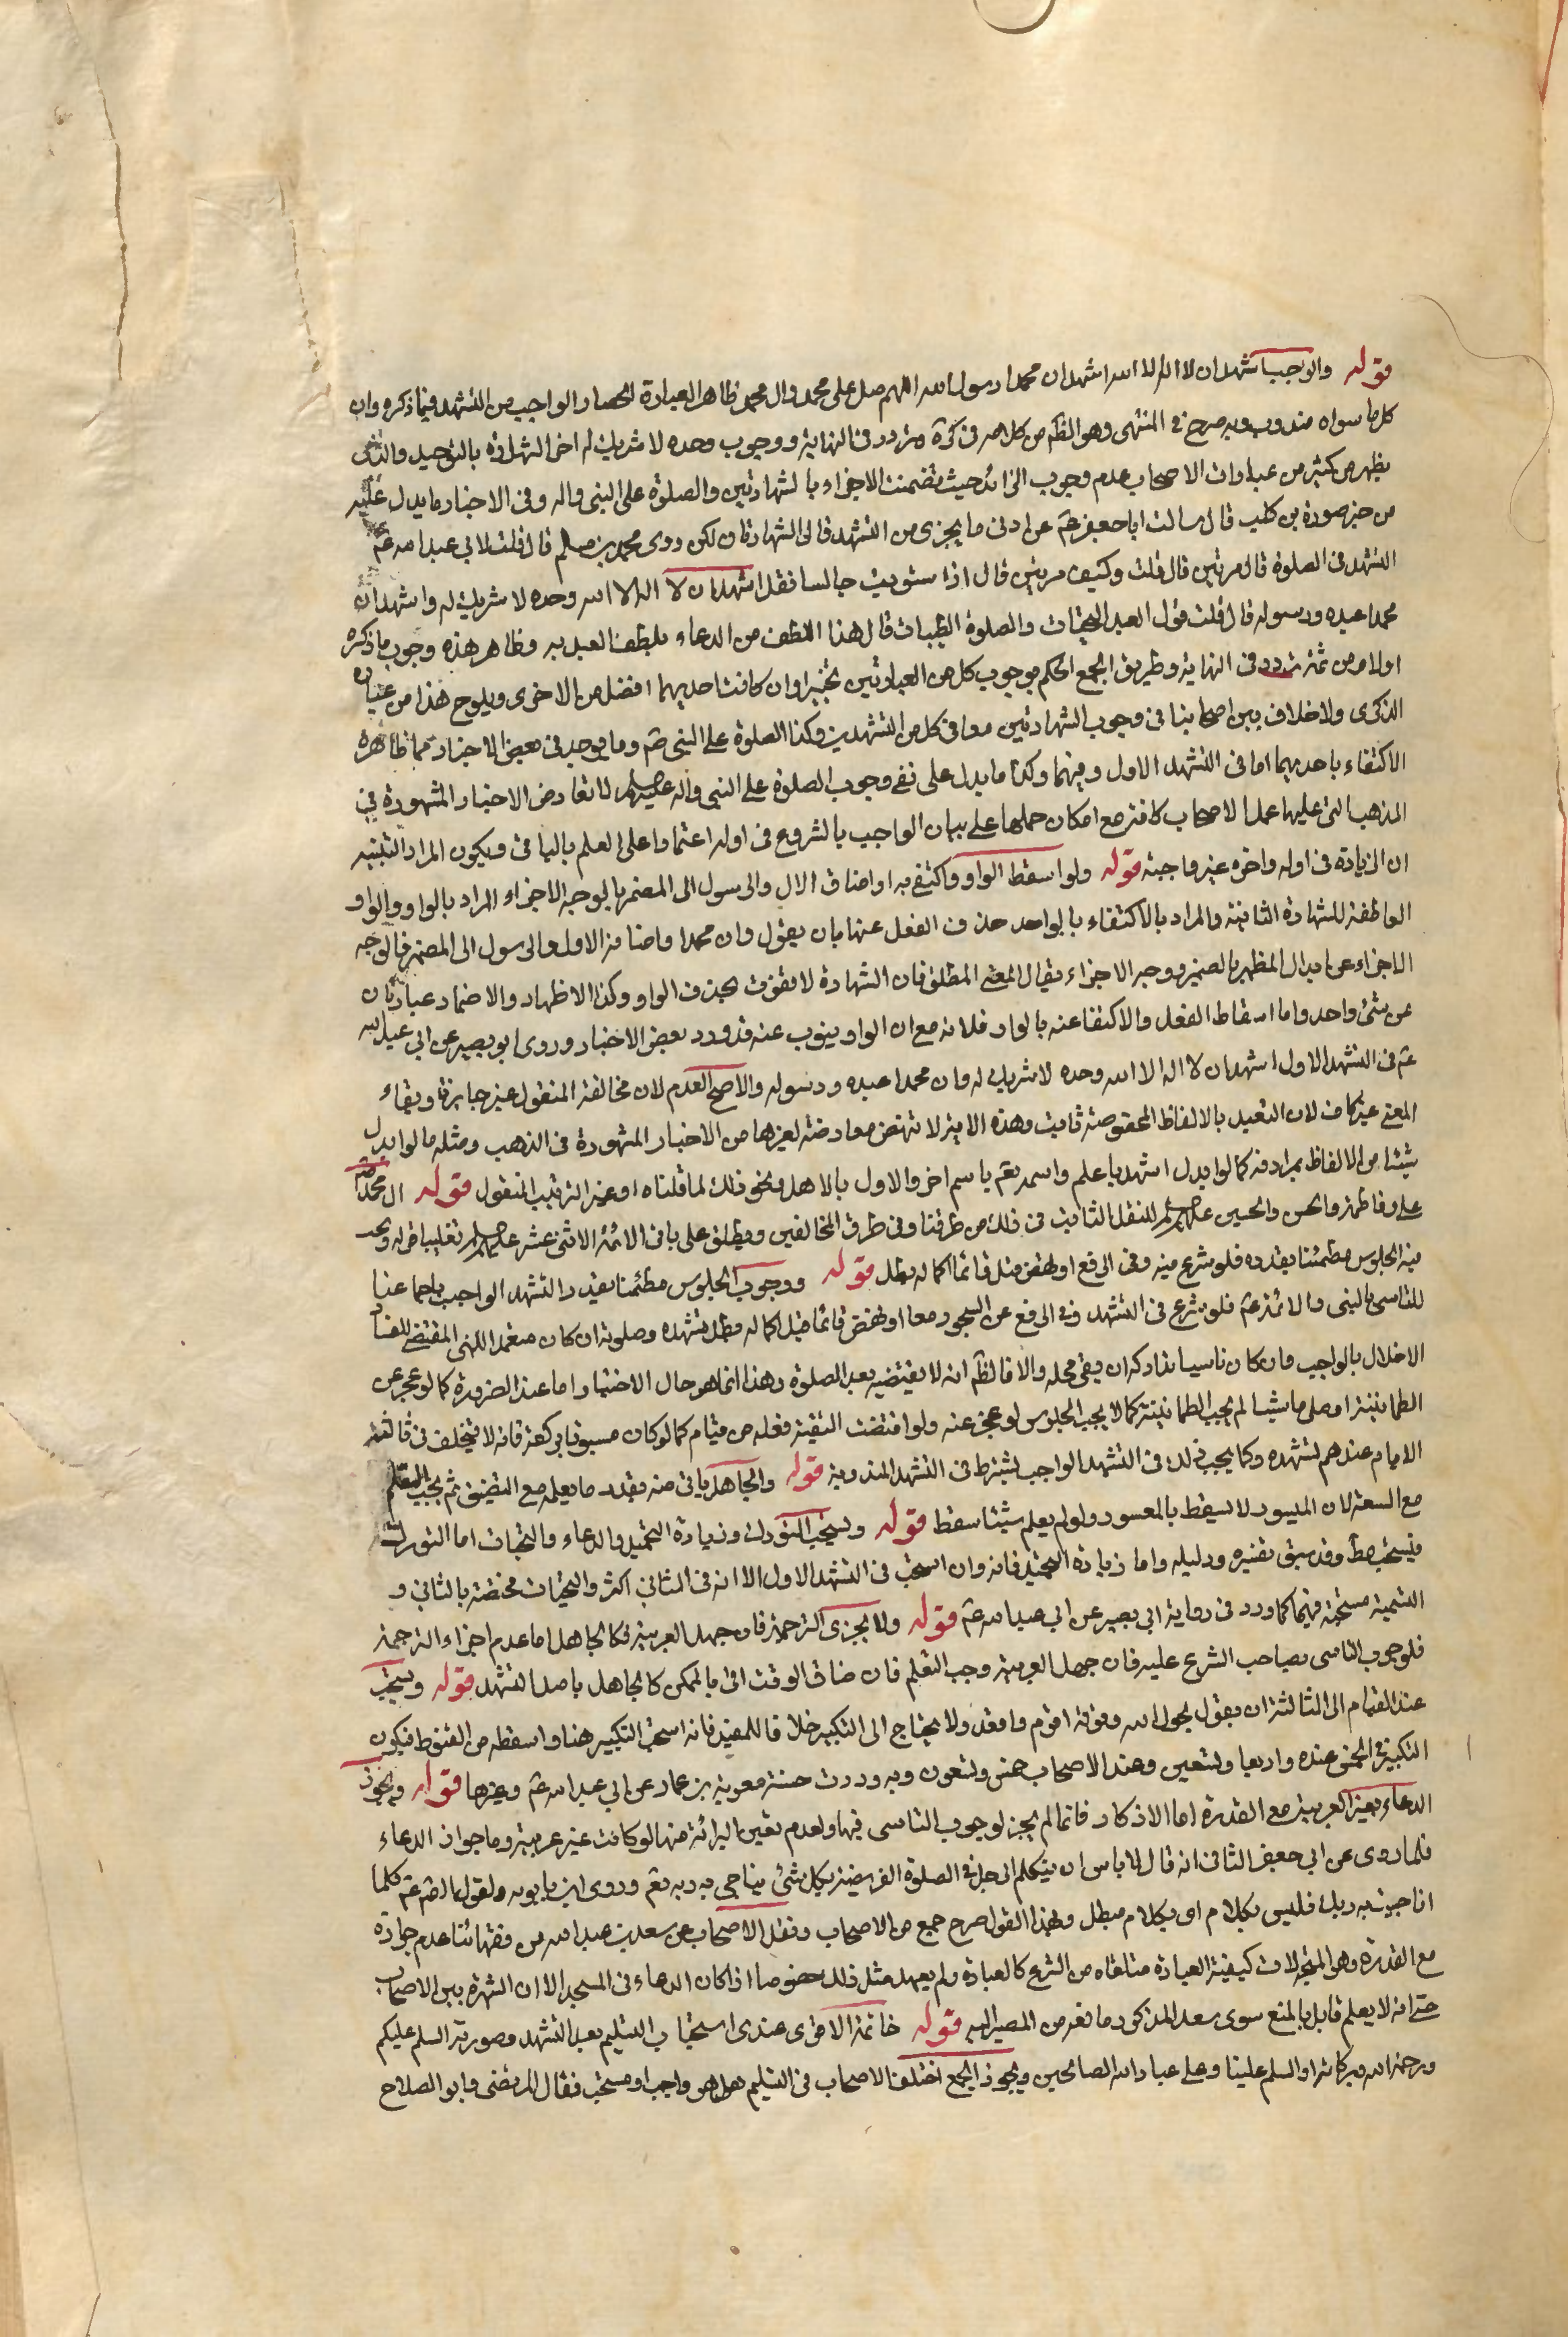 قوله والواجب اشهد ان لا اله الا الله اشهد ان محمدا رسول الله اللهم صل على محمد وال محمد ظاهر العبارة انحصار الواجب من التشهد فيما ذكره وان
كل ما سواه مندوب وبه صرح في المنتهى وهو الظم من كلامه في كرة وتردد في النهاية ووجوب وحده لا شريك له اخر الشهادة بالتوحيد والذى
يظهر من كثير من عبارات الاصحاب عدم وجوب الزائد حيث تضمنت الاجزاء بالشهادتين والصلوة على النبى واله وفى الاخبار ما يدل عليه
من خبر صورة بن كليب قال سالت ابا جعفر عم عن ادنى ما يجزى من التشهد قال الشهادتان لكن روى محمد بن مسلم قال قلت لابى عبد الله عم
التشهد فى الصلوة قال مرتين قال قلت وكيف مرتين قال اذا ستويت جالسا فقل اشهد ان لا اله الا الله وحده لا شريك له واشهد ان
محمدا عبده ورسوله قال قلت قول العبد التحيات والصلوة الطيبات قال هذا اللطف من الدعاء يلطف العبد به وظاهر هذه وجوب ما ذكره
اولا ومن ثمة تردد فى النهاية وطريق الجمع الحكم بوجوب كل من العبارتين تخييرا وان كانت احديهما افضل من الاخرى ويلوح هذا من عبارة
الذكرى ولا خلاف بين اصحابنا فى وجوب الشهادتين معا فى كل من التشهدين وكذا الصلوة على النبى صم وما يوجد فى بعض الاخبار مما ظاهره
الاكتفاء باحديهما اما فى التشهد الاول وفيهما وكذا ما يدل على نفى وجوب الصلوة على النبى واله عليهم السلام لا تعارض الاخبار المشهورة فى
المذهب التى عليها عمل الاصحاب كافة مع امكان حملها على بيان الواجب بالشروع فى اوله اعتمادا على العلم بالباقى ويكون المراد التنبيه
ان الزيادة فى اوله واخره غير واجبة قوله ولو اسقط الواو واكتفى به او اضاف الال والرسول الى المضمر فالوجه الاجزاء المراد بالواو والواو
العاطفة للشهادة الثانية والمراد بالاكتفاء بالواحد حذف الفعل عنها بان يقول وان محمدا واضافة الاول والرسول الى المضمر فالوجه
الاجزاء عن ابدال المظهر بالضمير ووجه الاجزاء بقيال المعنى المطلق فان الشهادة لا تفوت بحذف الواو وكذا الاظهار والاضمار عبارتان
عن شئ واحد واما اسقاط الفعل والاكتفا عنه بالواو فلانه مع ان الواو ينوب عنه قد ورد بعض الاخبار وروى ابو بصير عن ابى عبد الله
عم فى التشهد الاول اشهد ان لا اله الا الله وحده لا شريك له وان محمدا عبده ورسوله والاصح العدم لان مخالفة المنقول غير جايزة وبقاء
المعنى غير كاف لان التعبد بالالفاظ المخصوصة ثابت وهذه الاية لا تنهض معارضة لغيرها من الاخبار المشهورة فى الذهب ومثله ما لو ابدل
شيئا من الالفاظ بمرادفه كما لو ابدل اشهد باعلم واسمه تعم باسم اخر والاول بالاهل ونحو ذلك لما قلناه او غير الترتيب المنقول قوله ال محمد صم
على وفاطمة والحسن والحسين عليهم السلام للنقل الثابت فى ذلك من طرقنا وفى طرق المخالفين ويطلق على باقى الائمة الاثنى عشر عليهم السلام تغليبا قوله ويجب
فيه الجلوس مطمئنا بقدره فلو شرع فيه وفى الرفع او نهض قبل قائما اكماله بطل قوله ووجوب الجلوس مطمئنا بقدر التشهد الواجب باجماعنا
للتاسى بالنبى والائمة عم فلو شرع فى التشهد وفى الرفع عن السجود معا او نهض قائما قبل اكماله بطل تشهده وصلوته ان كان متعمدا للنهى المقتضى للفساد
الاخلال بالواجب وان كان ناسيا تداركه ان بقى محله والا فالظم انه لا يقتضيه بعد الصلوة وهذا انما هو حال الاختيار اما عند الضرورة كما لو عجز عن
الطمانينة او صلى ماشيا لم يجب الطمانينة كما لا يجب الجلوس لو عجز عنه ولو اقتضت التقية فعله من قيام كما لو كان مسبوقا بركعة فانه لا يتخلف فى ثالثة
الامام عندهم لتشهده وكما يجب ذلك فى التشهد الواجب يشترط فى التشهد المندوبة قوله والجاهل ياتى منه بقدر ما يعلمه مع التضيق ثم يجب التعلم
مع السعة لان الميسور لا يسقط بالمعسور ولو لم يعلم شيئا سقط قوله ويستحب التورك وزيادة التحميد والدعاء والتحيات اما التورك
فيستحب مط وقد سبق تفسيره ودليله واما زيادة التحميد فانه وان استحب فى التشهد الاول الا انه فى الثانى اكثر والتحيات مختصة بالثانى و
التسمية مستحبة فيهما كما ورد فى رواية ابى بصير عن ابى عبد الله عم قوله ولا يجزى الترجمة فان جهل العربية فكالجاهل اما عدم اجزاء الترجمة
فلوجوب التاسى بصاحب الشرع عليه فان جهل العربية وجب التعلم فان ضاق الوقت اتى بالممكن كالجاهل باصل التشهد قوله ويستحب
عند القيام الى الثالثة ان يقول بحول الله وقوته اقوم واقعد ولا يحتاج الى التكبير خلافا للمفيد فانه استحب التكبير هنا واسقطه من القنوط فيكون
التكبير فى الخمس عنده واربعا وتسعين وعند الاصحاب خمس وتسعون وبه وردت حسنة معوية بن عمار عن ابى عبد الله عم وغيرها قوله ويجوز
الدعاء بغير العربية مع القدرة اما الاذكار فانما لم يجز لوجوب التاسى فيها ولعدم تعين البرائة منها لو كانت غير عربية وما جواز الدعاء
فلما روى عن ابى جعفر الثانى انه قال لا باس ان يتكلم الرجل فى الصلوة الفريضة بكل شئ يناجى به ربه تعم وروى ابن بابويه ولقول الصادق عم كلما
اناجيت به ربك فليس بكلام اى بكلام مبطل وبهذا القول صرح جمع من الاصحاب ونقل الاصحاب عن سعد بن عبد الله من فقهائنا عدم جوازه
مع القدرة وهو المتجه لان كيفية العبادة متلقاه من الشرع كالعبادة ولم يعهد مثل ذلك خصوصا اذا كان الدعاء فى المسجد الا ان الشهرة بين الاصحاب
حتى انه لا يعلم قايل بالمنع سوى سعد المذكور مانع من المصير اليه قوله خاتمة الاقوى عندى استحباب التسليم بعد التشهد وصورته السلم عليكم
ورحمة الله وبركاته او السلم علينا وعلى عباد الله الصالحين ويجوز الجمع اختلف الاصحاب فى التسليم هل هو واجب او مستحب فقال المرتضى وابو الصلاح